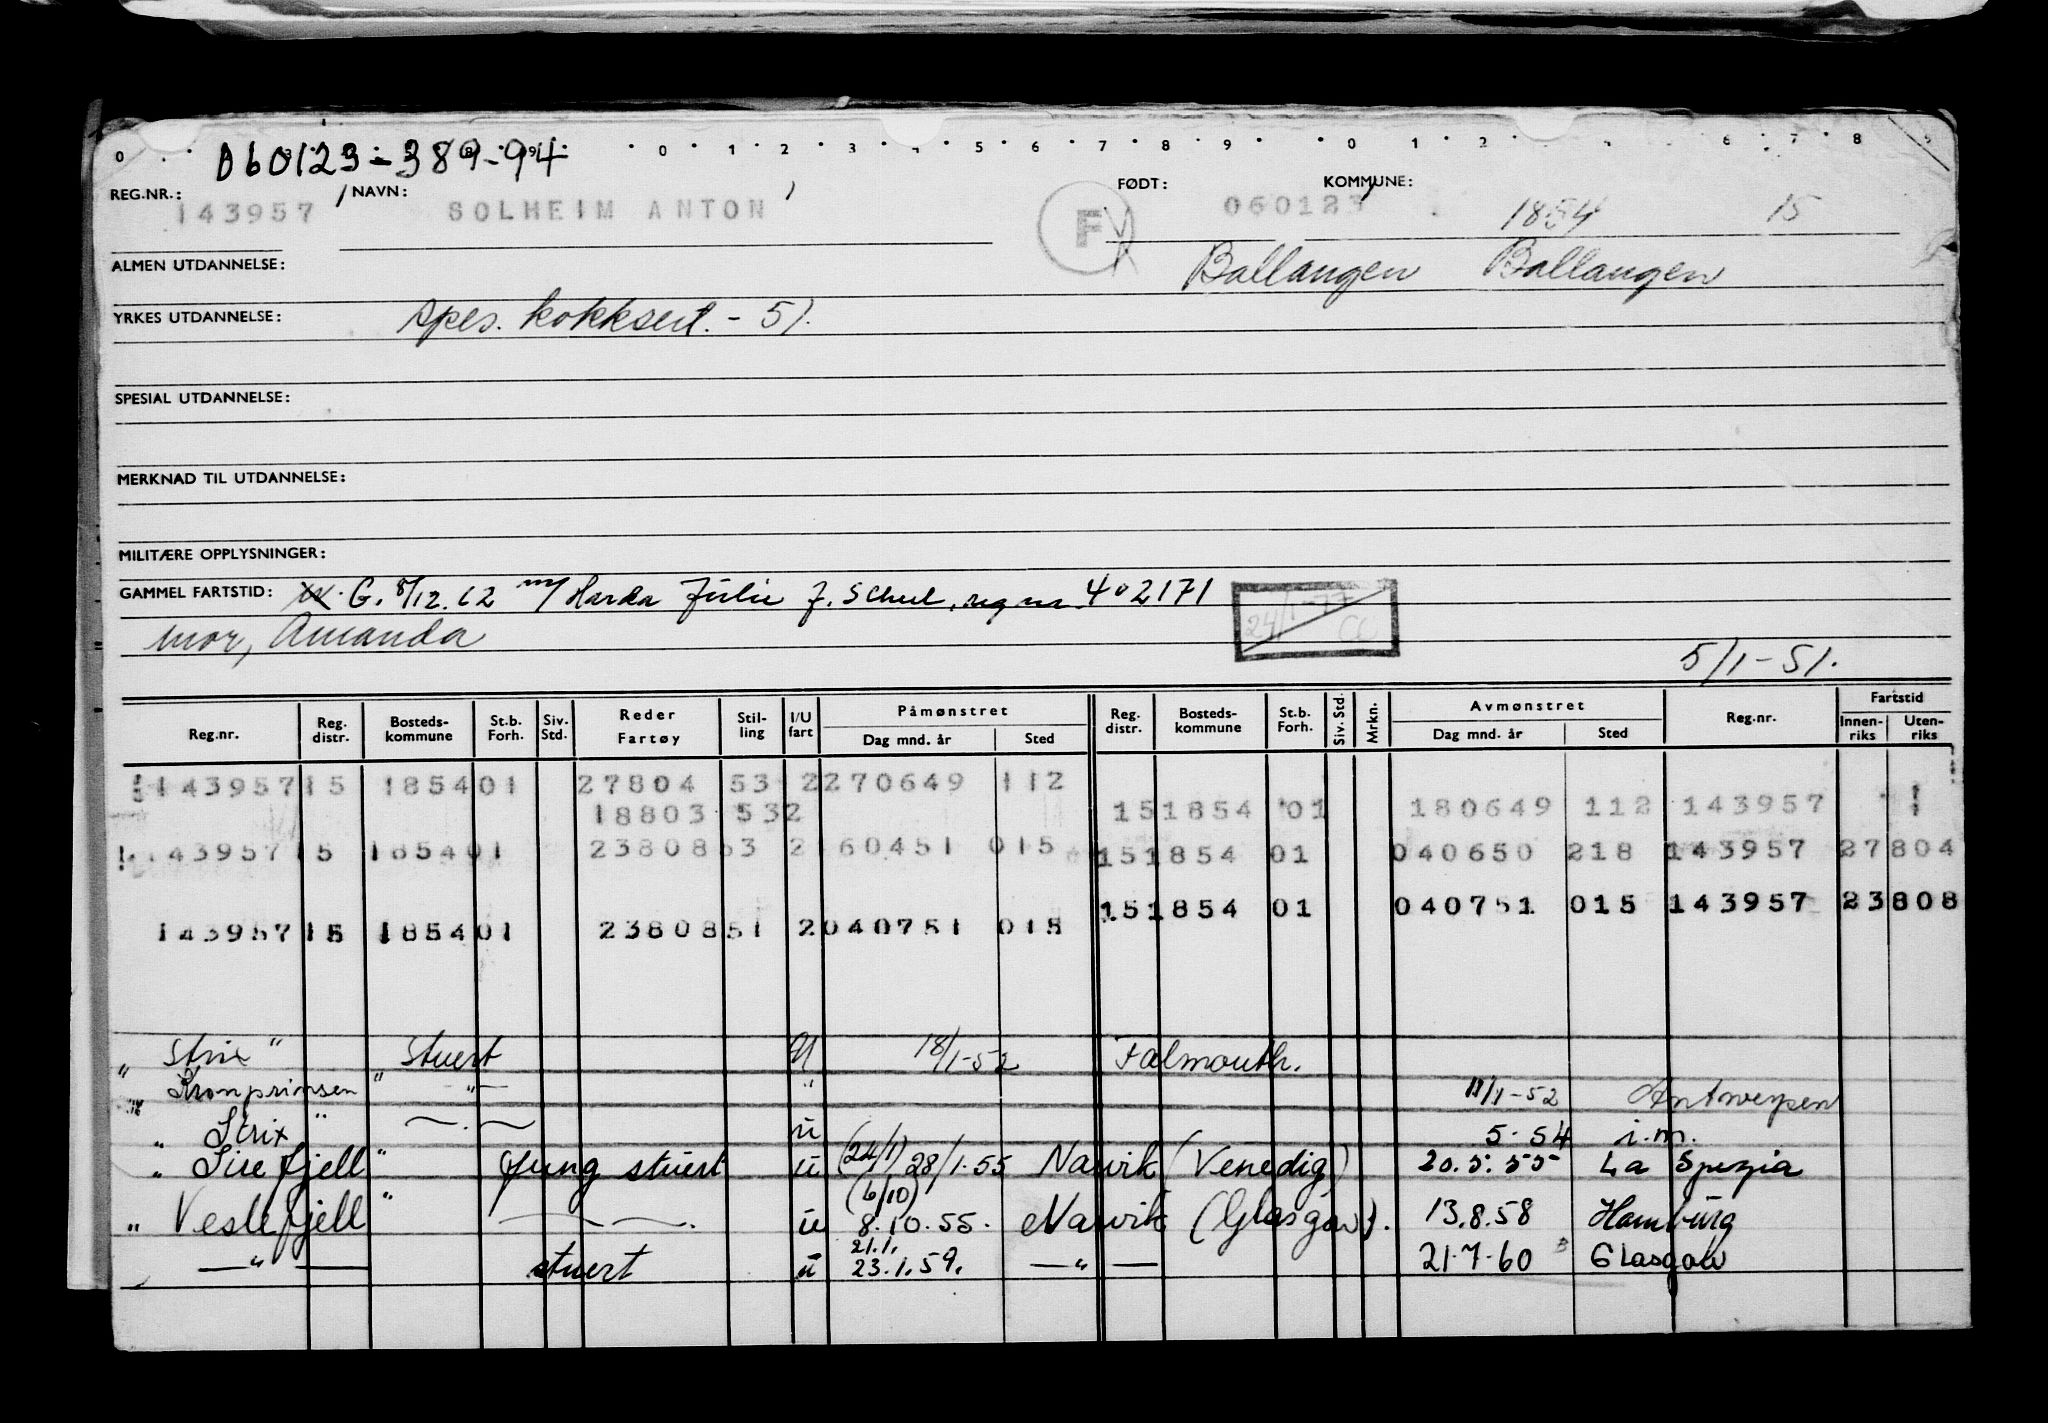 060123-389-94
REG.NR.: 143957 NAVN: SOLHEIM ANTON F FØDT: 060123 KOMMUNE: 1854 15
ALMEN UTDANNELSE: Ballangen Ballangen
YRKES UTDANNELSE: spes. kokksert. - 51.
SPESIAL UTDANNELSE:
MERKNAD TIL UTDANNELSE:
MILITÆRE OPPLYSNINGER:
GAMMEL FARTSTID: G. 8/12.62 m/ Harda Julie f. Scheel, reg nr. 402171
24/1-77 CC
mor, Amanda
5/1-51.
Reg.nr. Reg. distr. Bosteds-kommune St.b. Forh. Siv. Std. Reder Fartøy Stil-ling I/U fart Påmønstret Dag mnd. år Sted Reg. distr. Bosteds-kommune St.b. Forh. Siv. Std. Mrkn. Avmønstret Dag mnd. år Sted Reg.nr. Fartstid Innen-riks Uten-riks
143957 15 1854 01 27804 53 2 270649 112
18803 53 2 15 1854 01 180649 112 143957
143957 15 1854 01 23808 53 2 160451 015 15 1854 01 040650 218 143957 27804
15 1854 01 040751 015 143957 23808
143957 15 1854 01 23808 51 2 040751 015
" Strix " Stuert U 18/1-52 Falmouth.
" Kronprinsen " — " — " 11/1-52 Antwerpen
" Strix " — . — u 5-54 i.m.
" Sirefjell " Jung stuert u (24/1) 28/1.55 Narvik (Venedig) 20.5.55 La Spezia
" Veslefjell " — . — . u (6/10) 8.10.55. Narvik (Glasgow). 13.8.58 Hamburg
— " — stuert u 21.1. 23.1.59. — " — 21.7.60 Glasgow